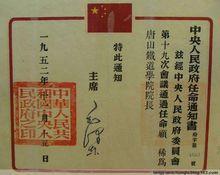 中央人民政府任命通知書
茲經中央人民政府委員會
第十九次會議通過任命顧稀為
唐山鐵道學院院長
特此通知
主席
毛澤東
一九五二年
月
日
中華人民共
和國中央人
民政府之印